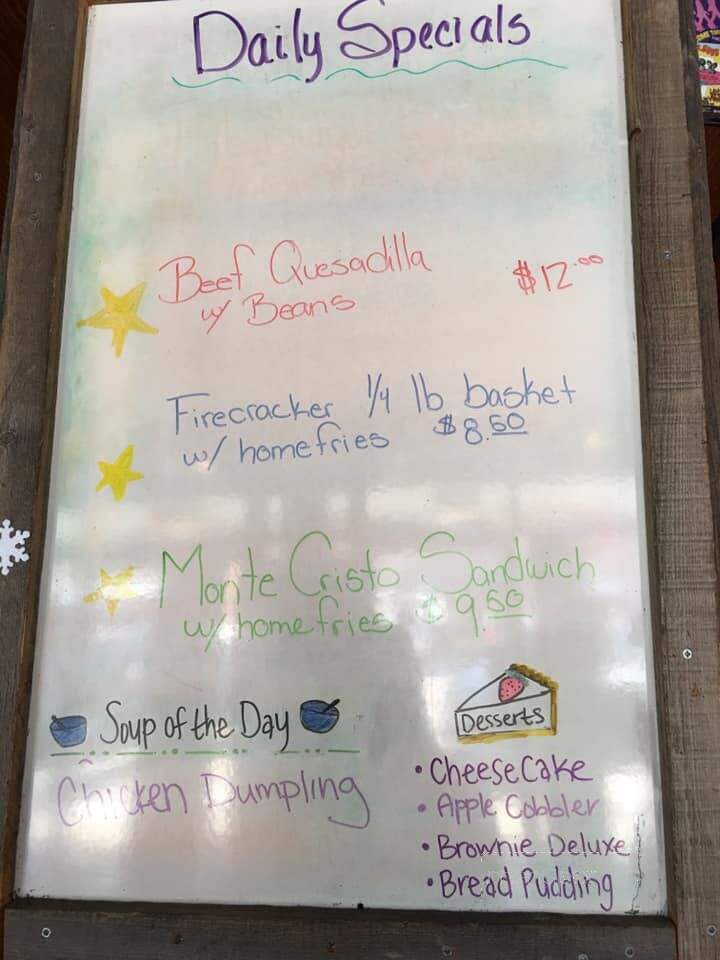 Daily Specials
Beef Quesadilla $12.00
w/ Beans
Firecracker 1/4 lb basket
w/ homefries $8.50
Monte Cristo Sandwich
w/ homefries $9.50
Soup of the Day
Chicken Dumpling
Desserts
• CheeseCake
• Apple Cobbler
• Brownie Deluxe
• Bread Pudding